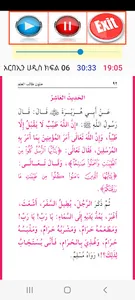 Exit
አርበኡነ ሀዲስ ክፍል 06 30:33 19:05
متون طالب العلم
الحَدِيثُ العَاشِرُ
عَنْ أَبِي هُرَيْرَةَ ﷺ، قَالَ: قَالَ
رَسُولُ اللَّهِ ﷺ: «إِنَّ اللَّهَ طَيِّبٌ لَا يَقْبَلُ إِلَّا
طَيِّبًا، وَإِنَّ اللَّهَ أَمَرَ المُؤْمِنِينَ بِمَا أَمَرَ بِهِ
المُرْسَلِينَ، فَقَالَ: ﴿يَا أَيُّهَا الرُّسُلُ كُلُوا مِنَ
الطَّيِّبَاتِ وَاعْمَلُوا صَالِحًا﴾، وَقَالَ تَعَالَى:
﴿يَا أَيُّهَا الَّذِينَ آمَنُوا كُلُوا مِنْ طَيِّبَاتِ مَا
رَزَقْنَاكُمْ﴾.
ثُمَّ ذَكَرَ الرَّجُلَ، يُطِيلُ السَّفَرَ، أَشْعَثَ
أَغْبَرَ، يَمُدُّ يَدَيْهِ إِلَى السَّمَاءِ: يَا رَبِّ! يَا رَبِّ!
وَمَطْعَمُهُ حَرَامٌ، وَمَشْرَبُهُ حَرَامٌ، وَمَلْبَسُهُ
حَرَامٌ، وَغُذِيَ بِالحَرَامِ، فَأَنَّى يُسْتَجَابُ
لَهُ؟!» رَوَاهُ مُسْلِمٌ.